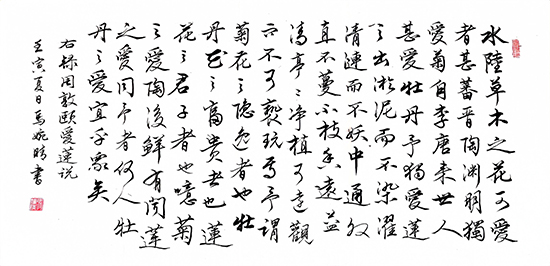 水陸草木之花可愛
者甚蕃晉陶渊明獨
愛菊自李唐来世人
甚愛牡丹予獨愛蓮
之出淤泥而不染濯
清漣而不妖中通外
直不蔓不枝香遠益
清亭〻净植可遠觀
而不可褻玩焉予謂
菊花之隐逸者也牡
丹花之富貴者也蓮
花之君子者也噫菊
之愛陶後鮮有聞蓮
之愛同予者何人牡
丹之愛宜乎衆矣
右録周敦頤愛蓮説
壬寅夏日馬婉晴書